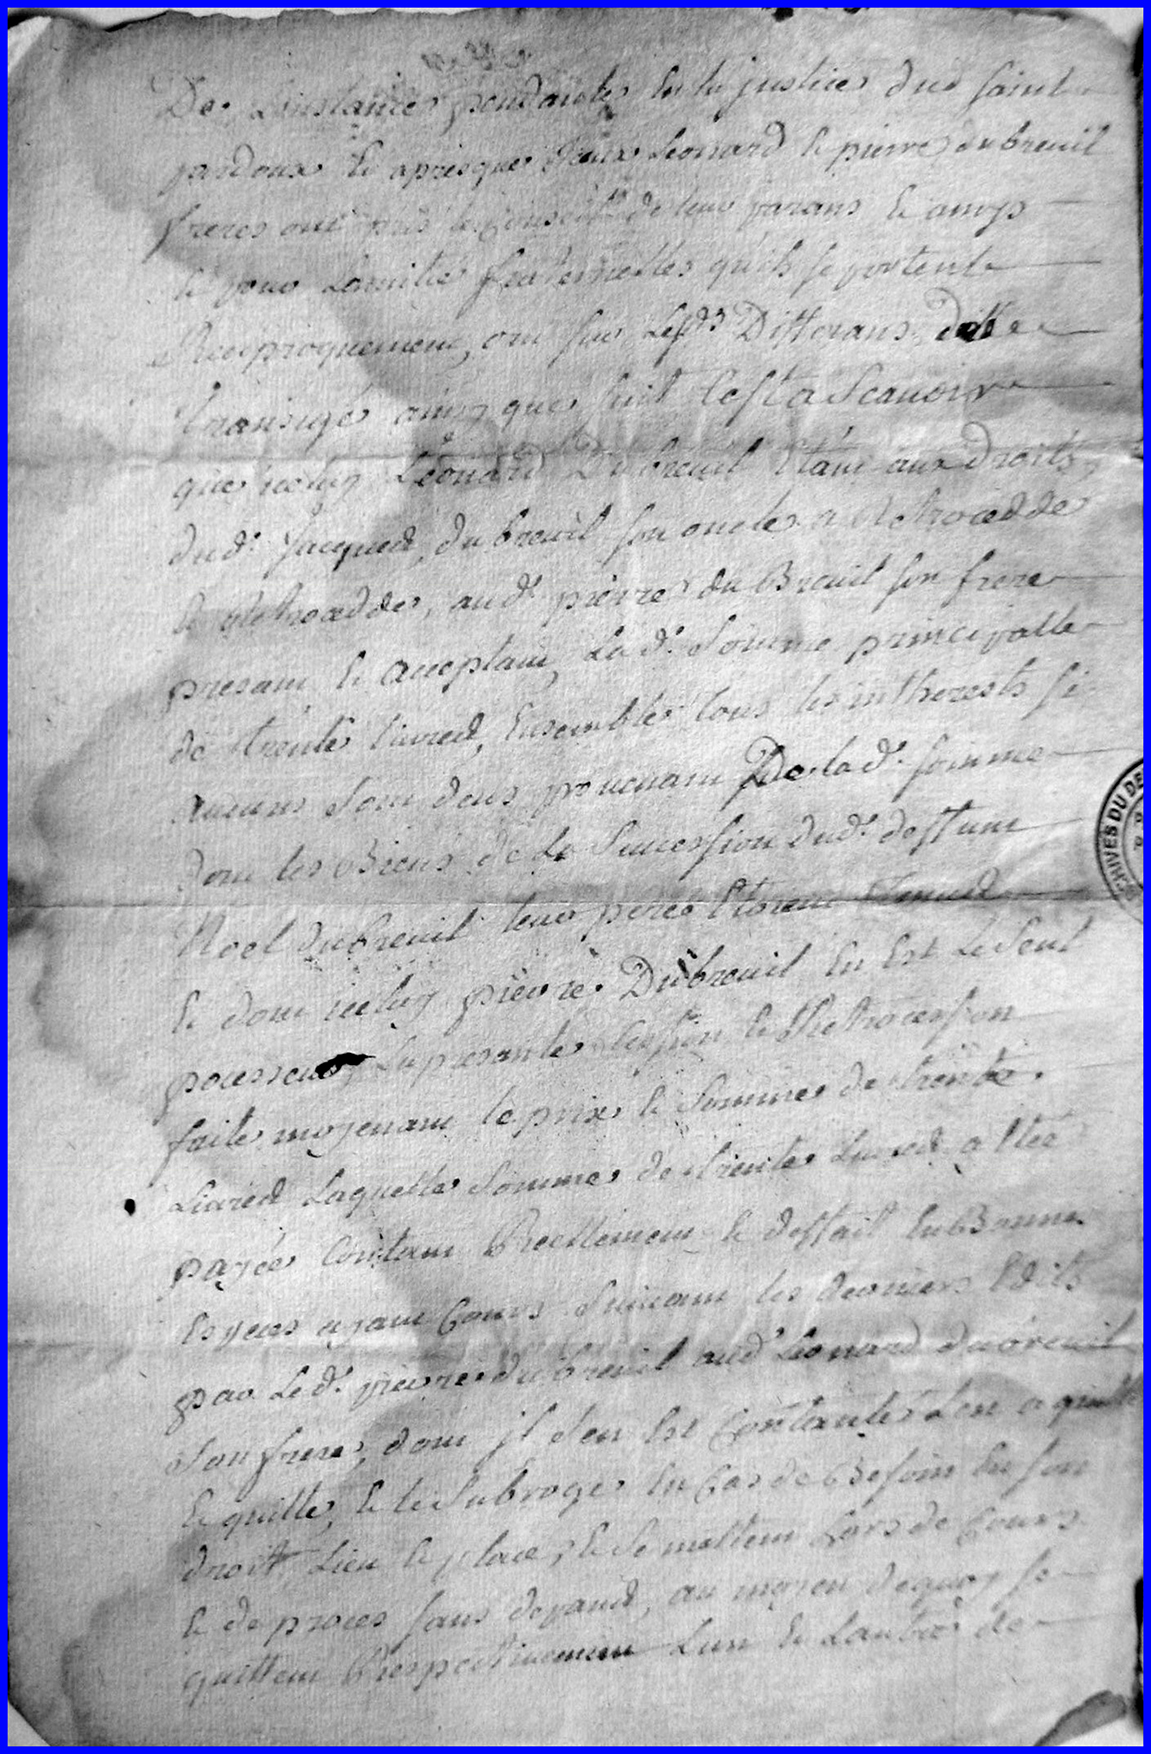 De Linstance pendante En la justice dud saint
pardoux Et apres que Iceux Leonard Et pierre dubreuil
freres ont pris le Conseil de leur parans Et amys
Et pour Lamitié fraternelles quils se portent
Reciproquement, ont sur Lesds Differans
transigé ainsy que suit Cest a Scauoir
que iceluy Léonard Dubreuil Etant aux Droits
dud. Jacques dubreuil son oncle a Rethrocedde
Et Rethrocedde, aud. pierre du Breuil son frere
presant Et acceptant, Lad. Somme principalle
de trente liures, Ensemble tous les inthorests si
aucuns Sont deus prouenant De lad. somme
dont les Biens de La Sucession dud. deffunt
Noel dubreuil leur pere Etoient tenues
Et dont iceluy pierre Dubreuil En Est Le Seul
possesseur, La presante Cession Et Rethrocession
faite moyenant le prix Et Somme de trente
Liures Laquelle Somme de trente Liures a Eté
payée Contant Reellement Et deffait En Bonnes
Especes ayant Cours Suiuant les derniers Edits
par Led. pierre dubreuil aud. Leonard dubreuil
Son frere, dont il Sen Est Contanté Len a quitté
Et quitte, Et le Subroge En Cas de Besoin En son
droit, Lieu Et place, Et Se mettent hors de Cours
Et de proces sans depands, au moyen dequoy se
quittent Respectiuement Lun Et Lautre de
ARCHIVES DU DE